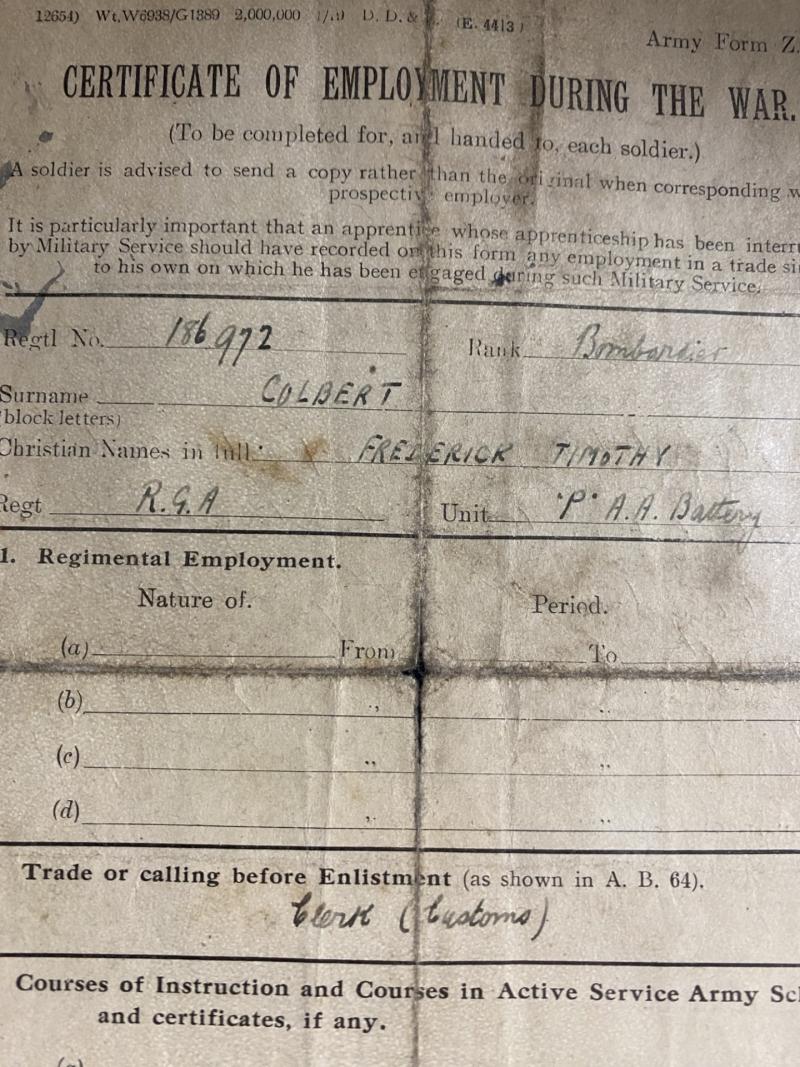 12654) Wt. W6938/G1389 2,000,000 D. D. & (E. 4413)
Army Form Z.
CERTIFICATE OF EMPLOYMENT DURING THE WAR.
(To be completed for, and handed to, each soldier.)
A soldier is advised to send a copy rather than the original when corresponding w
prospective employer.
It is particularly important that an apprentice whose apprenticeship has been interru
by Military Service should have recorded on this form any employment in a trade si
to his own on which he has been engaged during such Military Service.
Regtl No. 186972 Rank Bombardier
Surname COLBERT
(block letters)
Christian Names in full FREDERICK TIMOTHY
Regt R.G.A Unit "P" A.A. Battery
1. Regimental Employment.
Nature of. Period.
(a) From To
(b) ,, ,,
(c) ,, ,,
(d) ,, ,,
Trade or calling before Enlistment (as shown in A. B. 64).
Clerk (Customs)
Courses of Instruction and Courses in Active Service Army Sch
and certificates, if any.